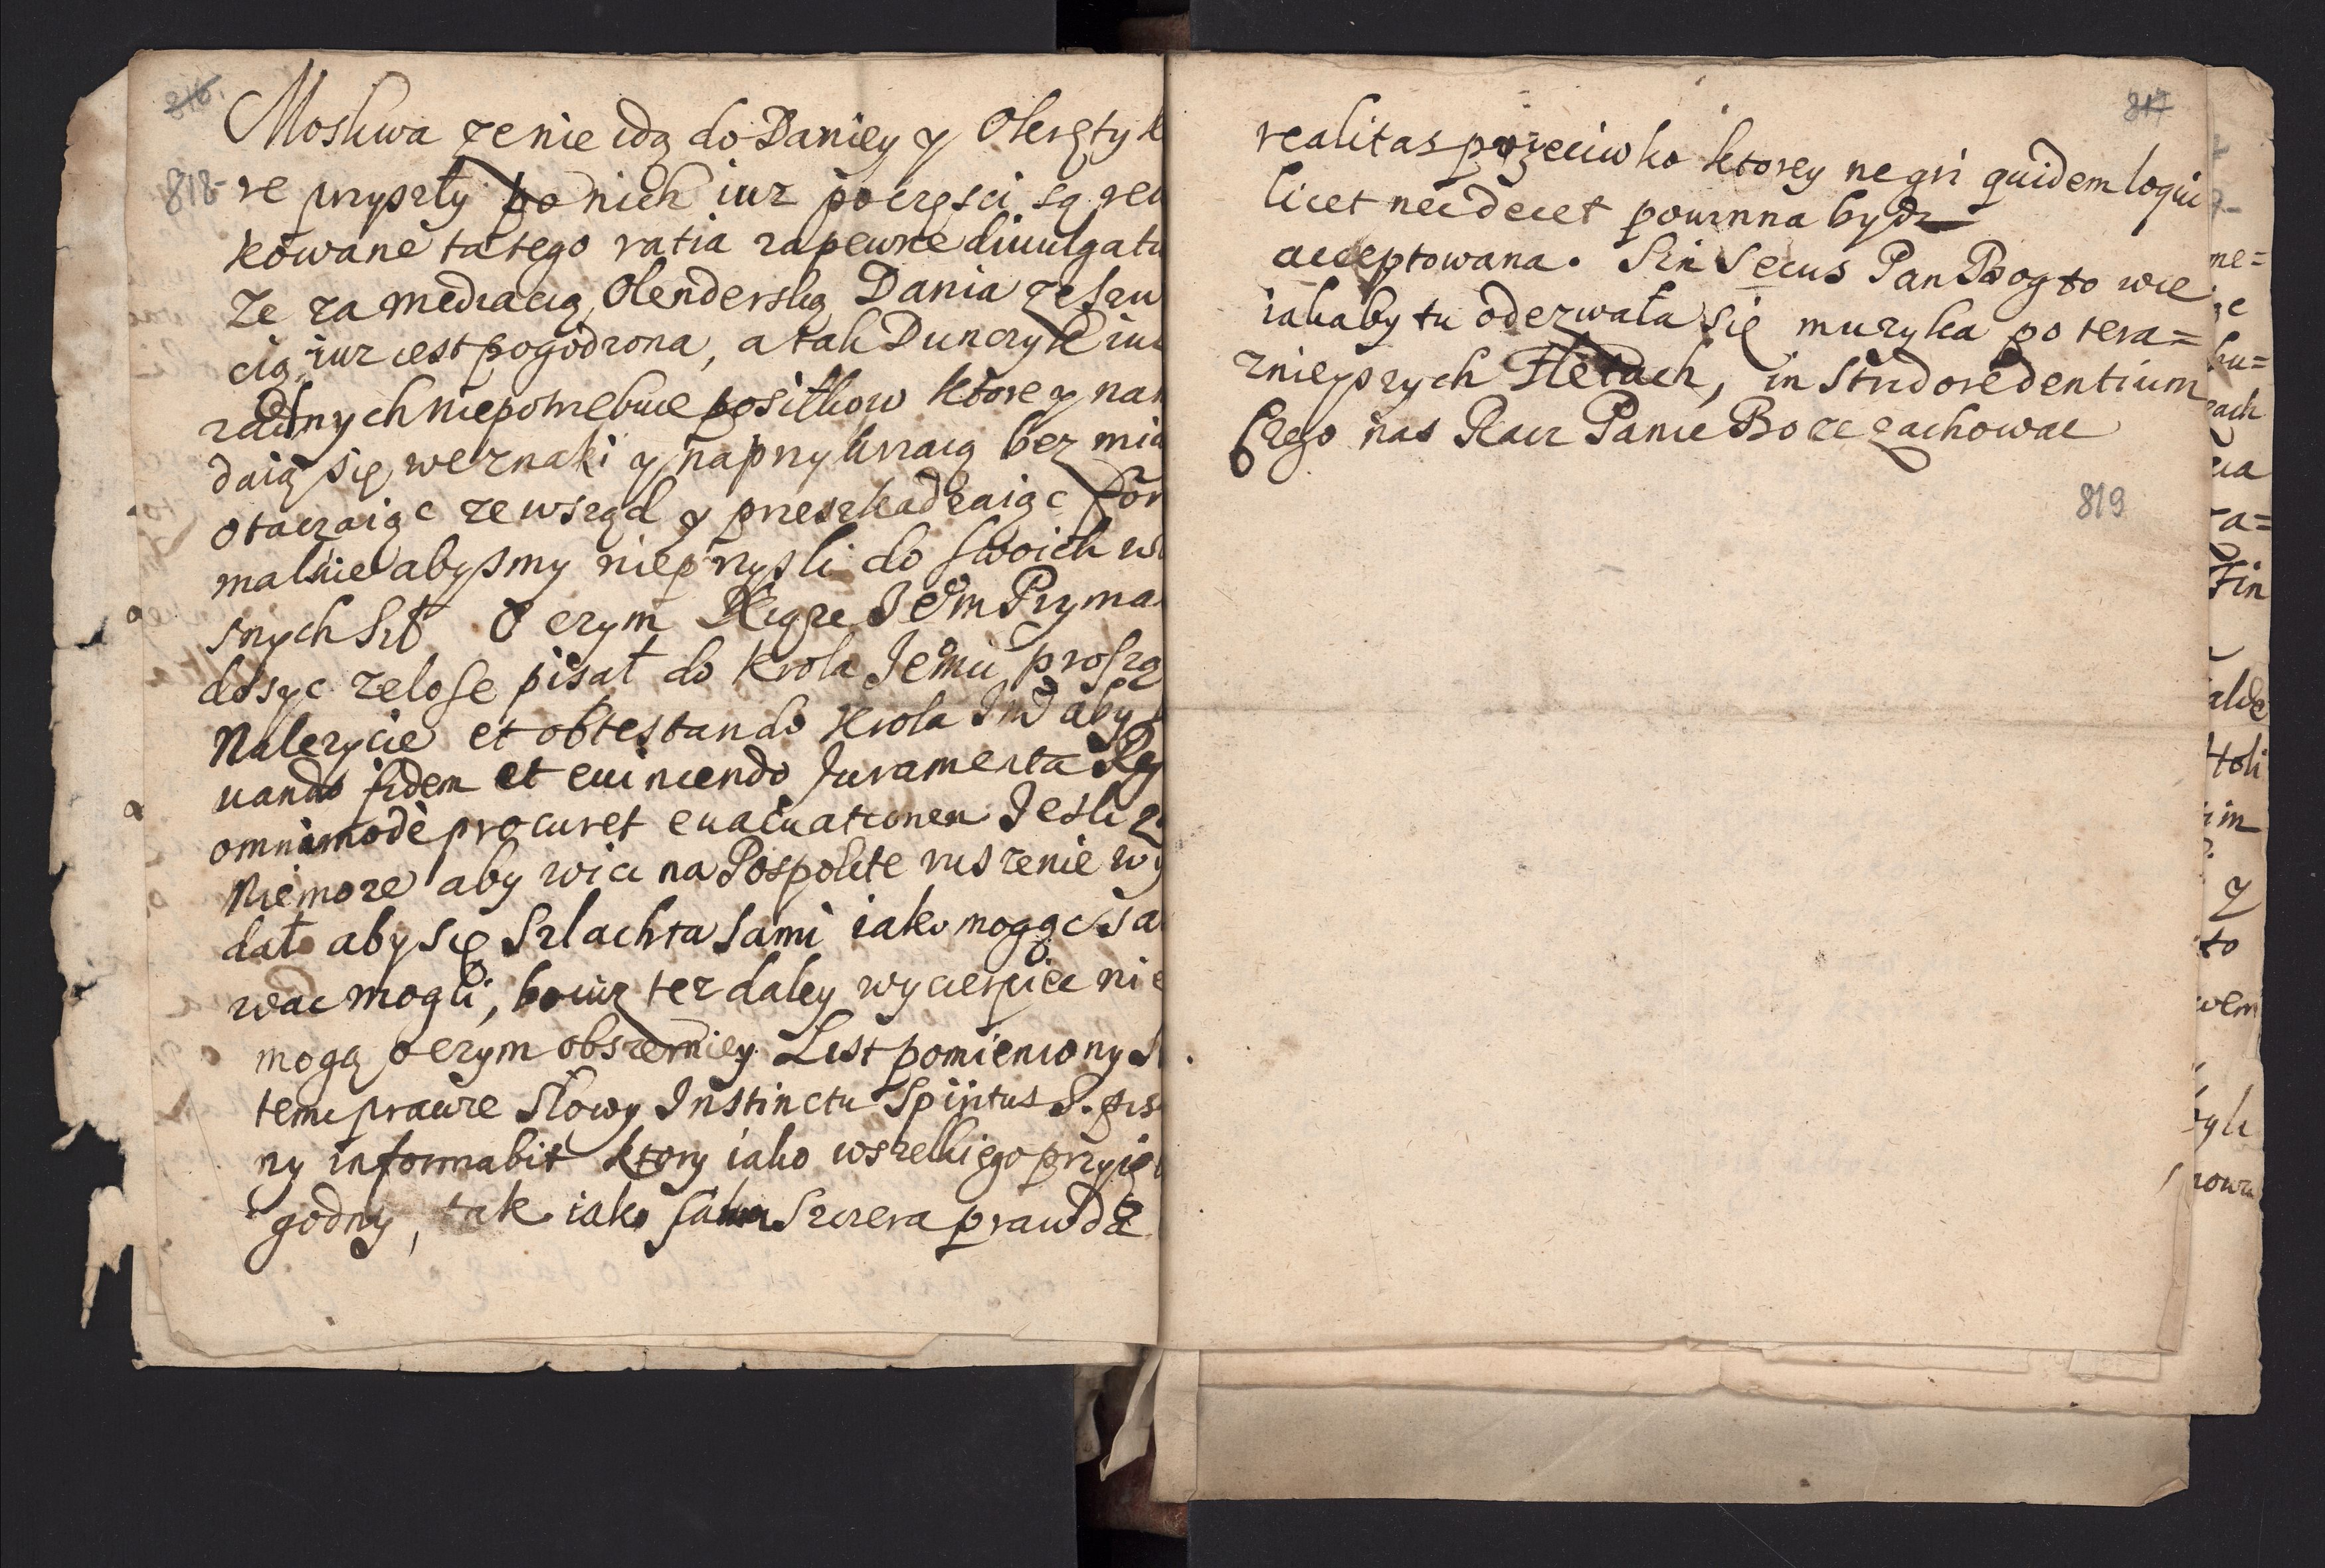 216.
818-
Moskwa ze nie idą do Daniey y Okręty k
re przyszły po nich iuz poczęsci są rew
kowane ta tego ratia zapewne diuulgatu
Ze za mediacią Olenderską Dania ze Szw
cią iuz iest pogodzona, a tak Dunczyk iuz
zadnych niepotrzebuie posiłkow ktore y nam
daią się weznaki y naprzykrzaią bez mia
otaczaiąc zewsząd y przeszkadzaiąc for
malnie abysmy nieprzyszli do swoich wł
snych Sił O czym Xiąze Jem Pryma
dosyc zelose pisał do Krola Jemu prosząc
Nalezycie et obtestando Krola Jm aby
uando fidem et euincendo Juramenta Reg
omnimode procuret euacuationem Jesli z
Nie moze aby wici na Pospolite ruszenie wy
dał aby się Szlachta sami iako mogąc sa
wac mogli, bo iuz tez daley wycierpiec nie
mogą o czym obszerniey List pomieniony S
temi prawie słowy Instinctu Spiritus S. pis
ny informabit ktory iako wszelkiego przyię
godny, tak iako sama Szczera prawda
817
realitas przeciwko ktorey negri quidem loqui
licet nec decet powinna bydz
acceptowana. Sin Secus Pan Boog to wie
iakaby tu odezwała się muzyka po tera=
znieyszych Fletach, in Stridore dentium
Czego nas Racz Panie Boze zachowac
819